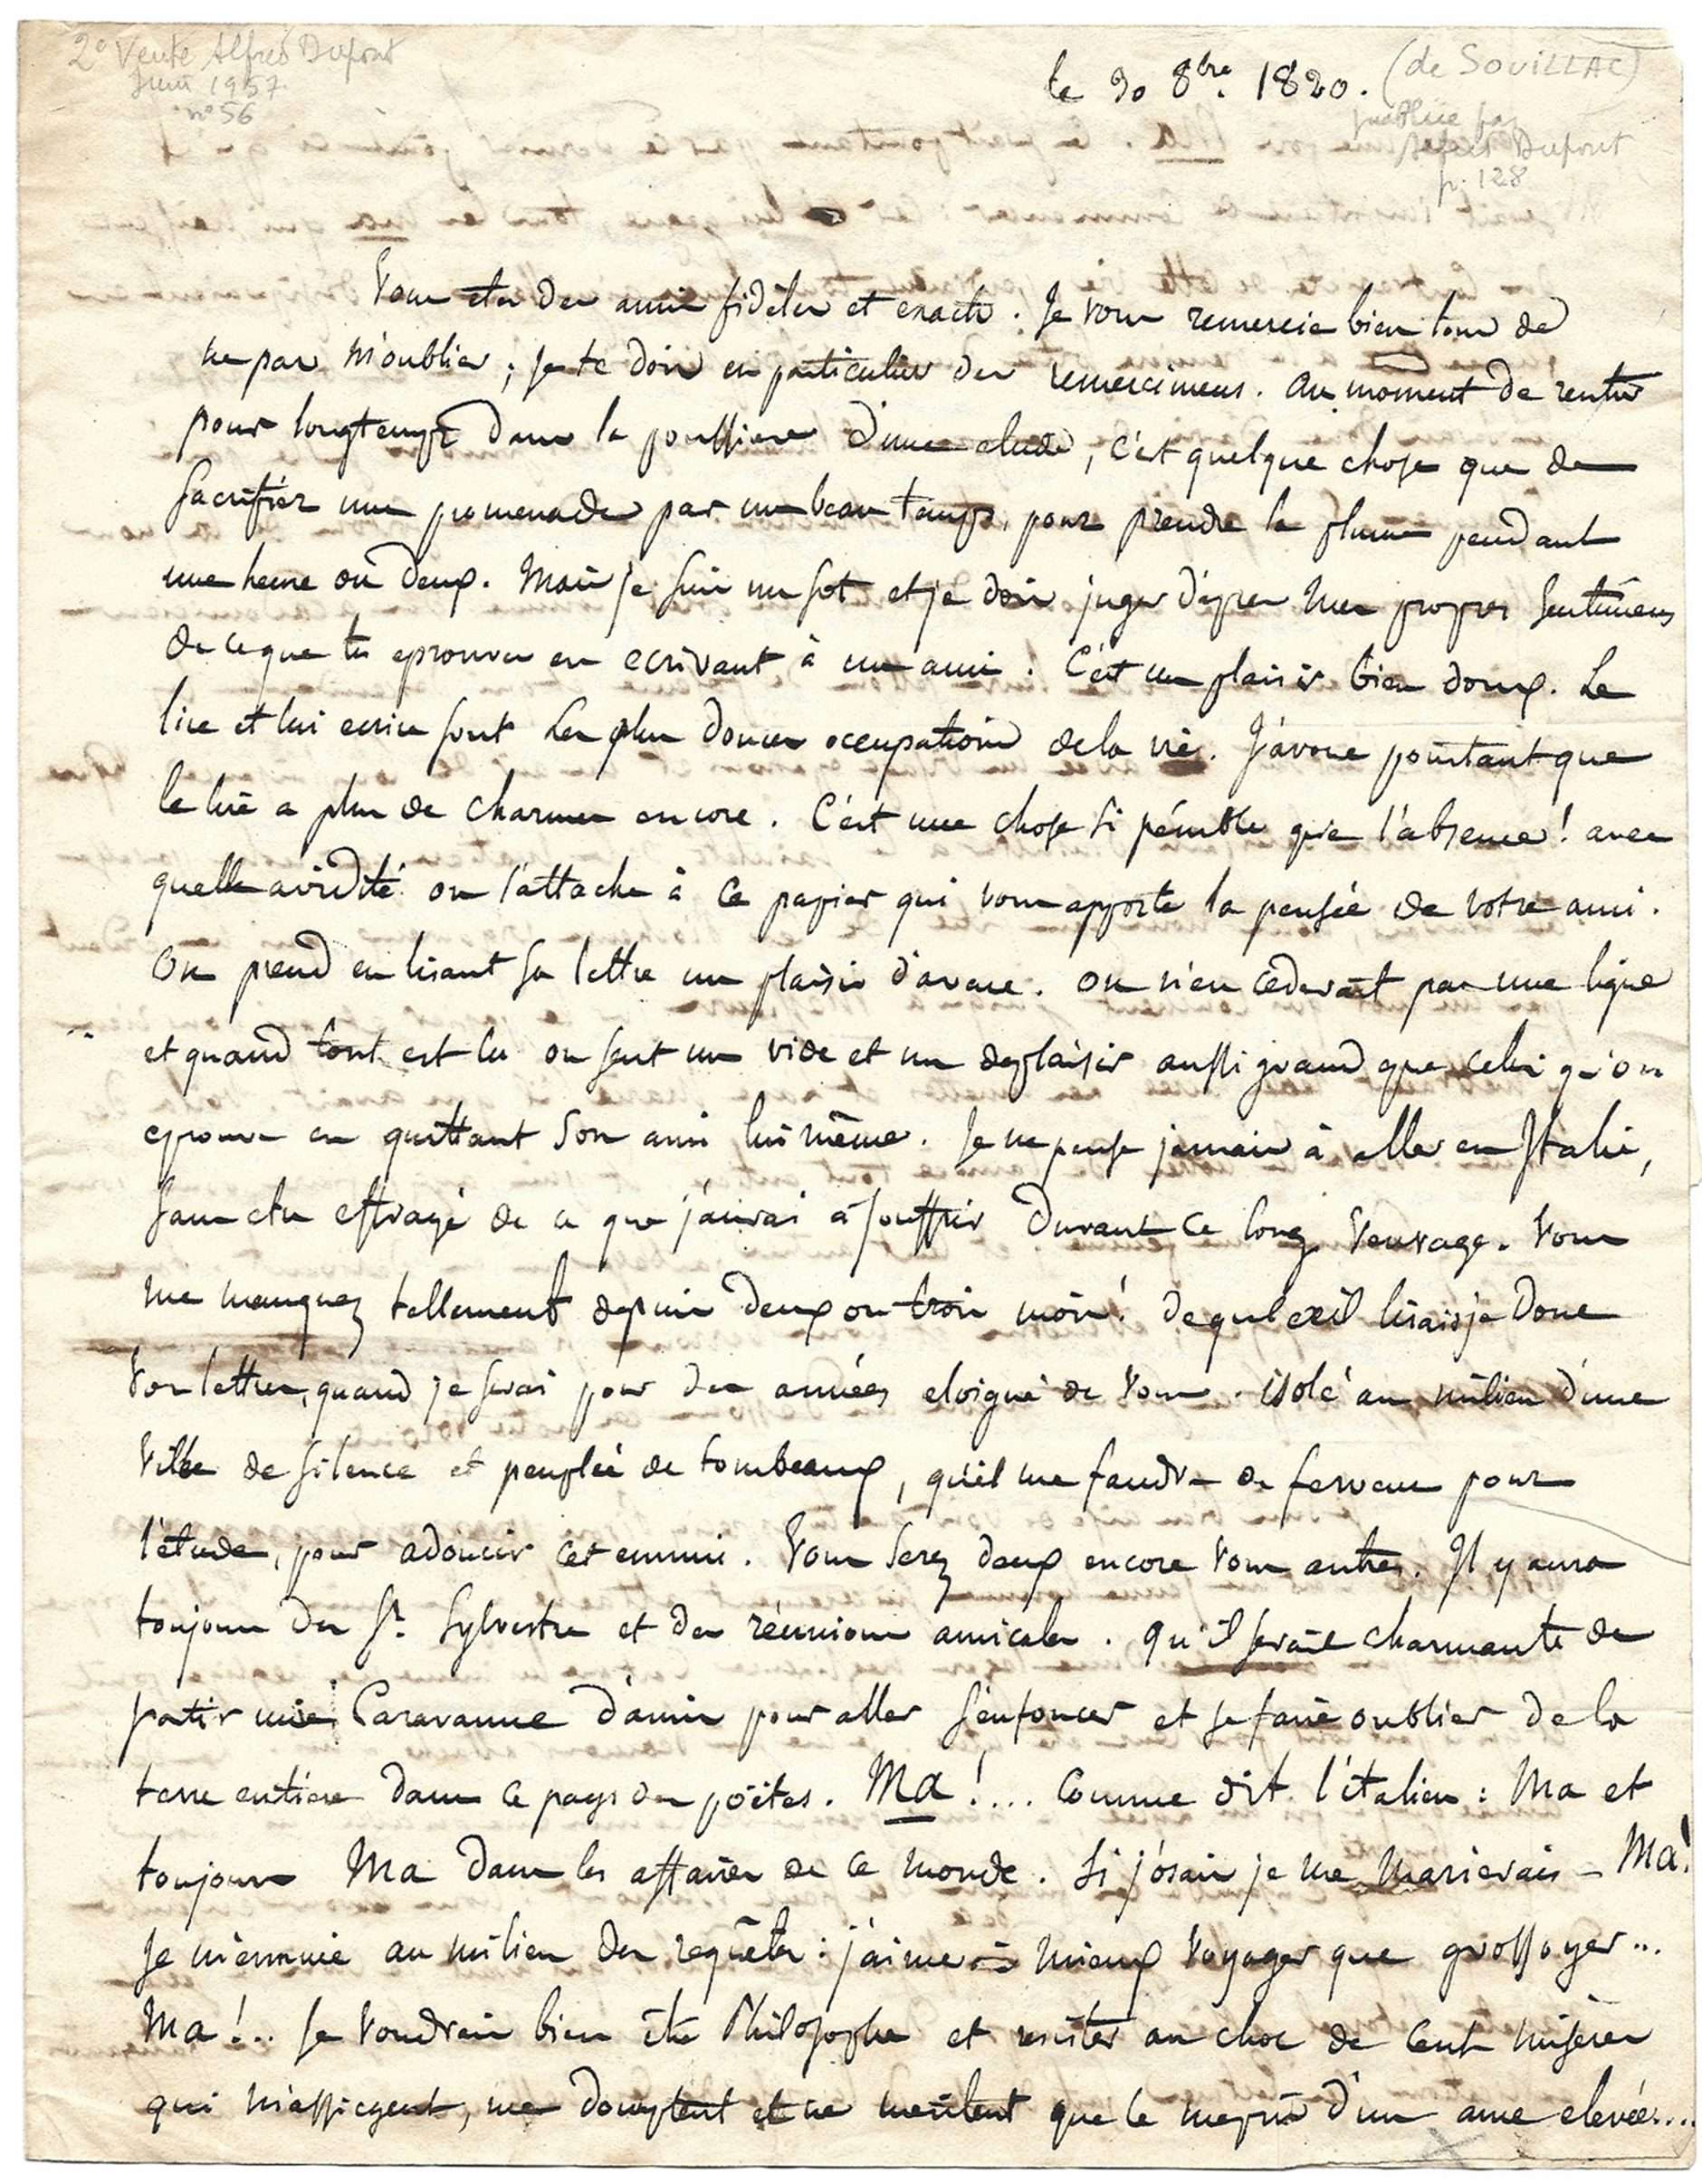 2e Vente Alfred Dupont
Juin 1957
n° 56
le 30 8bre. 1820. (de SOUILLAC)
publiée par
Alfred Dupont
p. 128
Vous etes des amis fidèles et exacts. Je vous remercie bien tous de
ne pas m'oublier ; je te dois en particulier des remercimens. Au moment de rentrer
pour longtemps dans la poussiere d'une etude, c'est quelque chose que de
sacrifier une promenade par un beau temps, pour prendre la plume pendant
une heure ou deux. Mais je suis un sot et je dois juger d'apres mes propres sentimens
de ce que tu eprouves en ecrivant à un ami. C'est un plaisir bien doux. Le
lire et lui ecrire sont les plus douces occupations de la vie. J'avoue pourtant que
le lire a plus de charmes encore. C'est une chose si pénible que l'absence ! avec
quelle avidité on s'attache à ce papier qui vous apporte la pensée de votre ami.
On prend en lisant sa lettre un plaisir d'avare. on n'en cederait pas une ligne
et quand tout est lu on sent un vide et un deplaisir aussi grand que celui qu'on
eprouve en quittant son ami lui même. Je ne pense jamais à aller en Italie,
sans etre effrayé de ce que j'aurai à souffrir durant ce long veuvage. Vous
me manquez tellement depuis deux ou trois mois ! de quel œil lirais je donc
vos lettres, quand je serai pour des années eloigné de vous. isolé au milieu d'une
ville de silence et peuplée de tombeaux, qu'il me faudra de ferveur pour
l'étude, pour adoucir cet ennui. Vous serez deux encore vous autres. Il y aura
toujours des St. Sylvestre et des réunions amicales. qu'il serait charmante de
partir une Caravanne d'amis pour aller s'enfoncer et se faire oublier de la
terre entière dans ce pays des poëtes. Ma !.... Comme dit l'italien : Ma et
toujours Ma dans les affaires de ce monde. Si j'osais je me marierais - Ma !
Je m'ennuie au milieu des requêtes : j'aime mieux voyager que grossoyer...
Ma !.. Je voudrais bien être Philosophe et resister au choc de cent misères
qui m'assiegent, me domptent et ne meritent que le mepris d'un ame elevée....